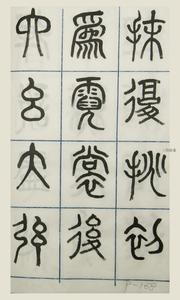 抹復挑初
為霓裳後
六幺大弦
P-168